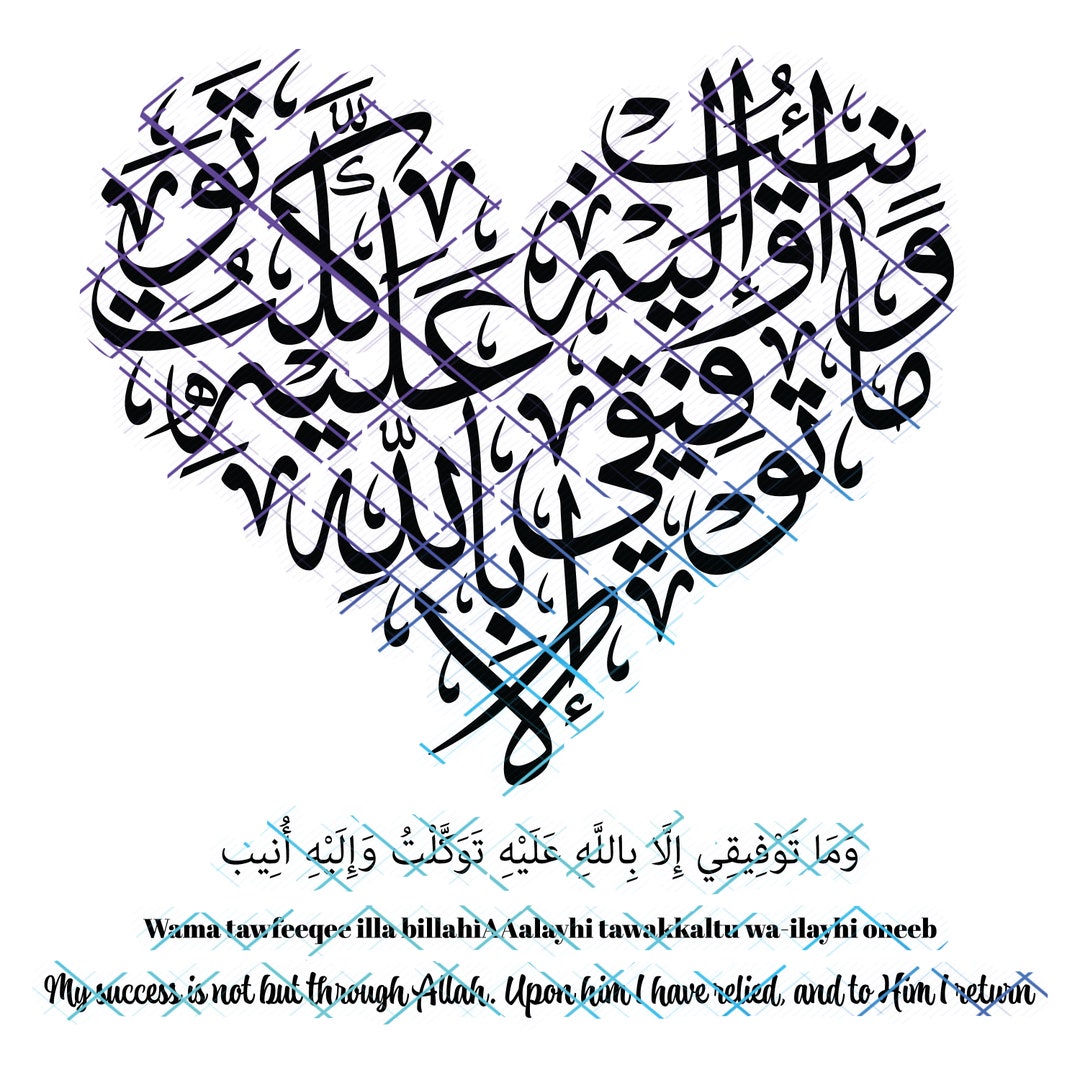 وَمَا تَوْفِيقِي إِلَّا بِاللَّهِ عَلَيْهِ تَوَكَّلْتُ وَإِلَيْهِ أُنِيبُ
وَمَا تَوْفِيقِي إِلَّا بِاللَّهِ عَلَيْهِ تَوَكَّلْتُ وَإِلَيْهِ أُنِيب
Wama tawfeeqee illa billahiAAalayhi tawakkaltu wa-ilayhi oneeb
My success is not but through Allah. Upon him I have relied, and to Him I return